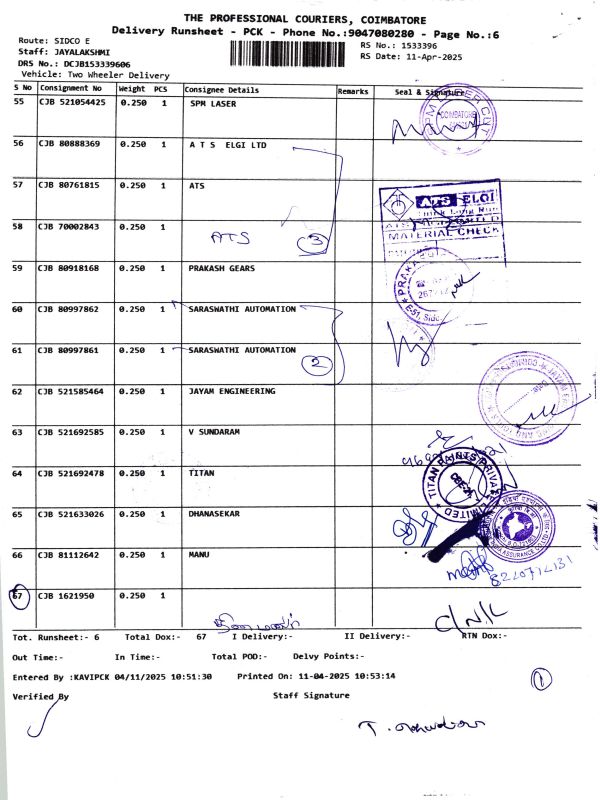 THE PROFESSIONAL COURIERS, COIMBATORE
Delivery Runsheet - PCK - Phone No.:9047080280 - Page No.:6
Route: SIDCO E
RS No.: 1533396
Staff: JAYALAKSHMI
RS Date: 11-Apr-2025
DRS No.: DCJB153339606
Vehicle: Two Wheeler Delivery
S No Consignment No Weight PCS Consignee Details Remarks Seal & Signature
55 CJB 521054425 0.250 1 SPM LASER
COIMBATORE
56 CJB 80888369 0.250 1 A T S ELGI LTD
57 CJB 80761815 0.250 1 ATS
ATS ELGI
MATERIAL CHECK
58 CJB 70002843 0.250 1 ATS 3
59 CJB 80918168 0.250 1 PRAKASH GEARS
60 CJB 80997862 0.250 1 SARASWATHI AUTOMATION
61 CJB 80997861 0.250 1 SARASWATHI AUTOMATION
2
62 CJB 521585464 0.250 1 JAYAM ENGINEERING
63 CJB 521692585 0.250 1 V SUNDARAM
64 CJB 521692478 0.250 1 TITAN
TITAN PAINTS PRIVATE LIMITED
CBE-21
65 CJB 521633026 0.250 1 DHANASEKAR
66 CJB 81112642 0.250 1 MANU
67 CJB 1621950 0.250 1
Tot. Runsheet:- 6 Total Dox:- 67 I Delivery:- II Delivery:- RTN Dox:-
Out Time:- In Time:- Total POD:- Delvy Points:-
Entered By :KAVIPCK 04/11/2025 10:51:30 Printed On: 11-04-2025 10:53:14
1
Verified By Staff Signature